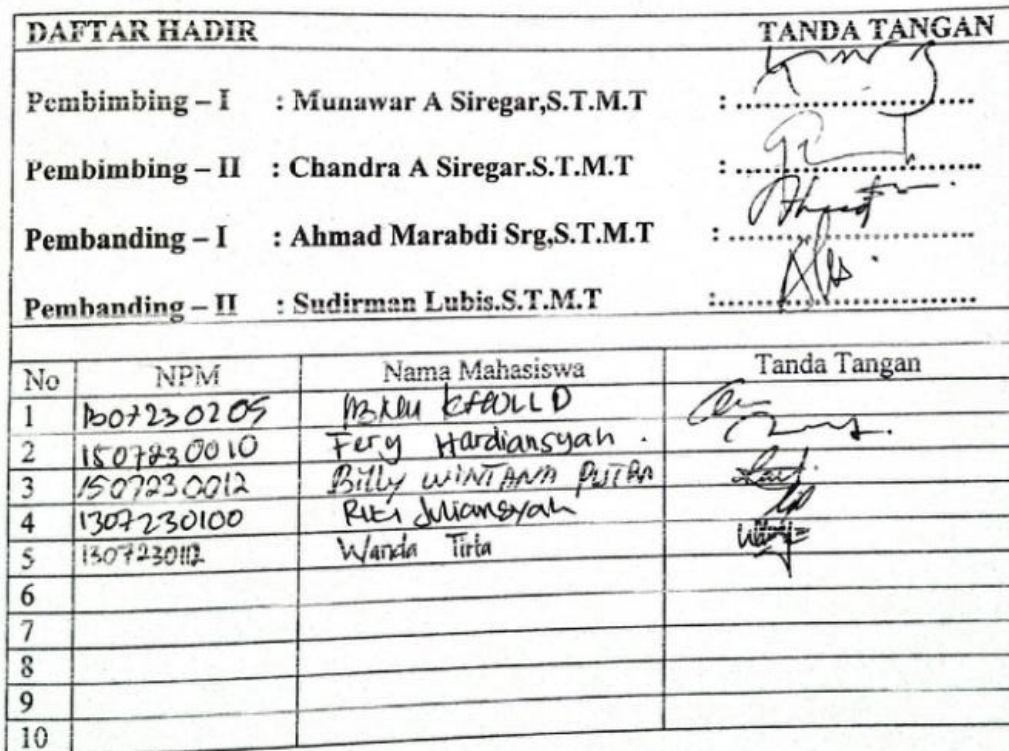 DAFTAR HADIR TANDA TANGAN
Pembimbing – I : Munawar A Siregar,S.T.M.T : ..............................
Pembimbing – II : Chandra A Siregar.S.T.M.T : ..............................
Pembanding – I : Ahmad Marabdi Srg,S.T.M.T : ..............................
Pembanding – II : Sudirman Lubis.S.T.M.T :..............................
No NPM Nama Mahasiswa Tanda Tangan
1 1307230205
2 1507230010 Fery Hardiansyah .
3 1507230012 Billy WINTANA PUTRA
4 1307230100 Riki Juliansyah
5 1307230112 Wanda Tirta
6
7
8
9
10